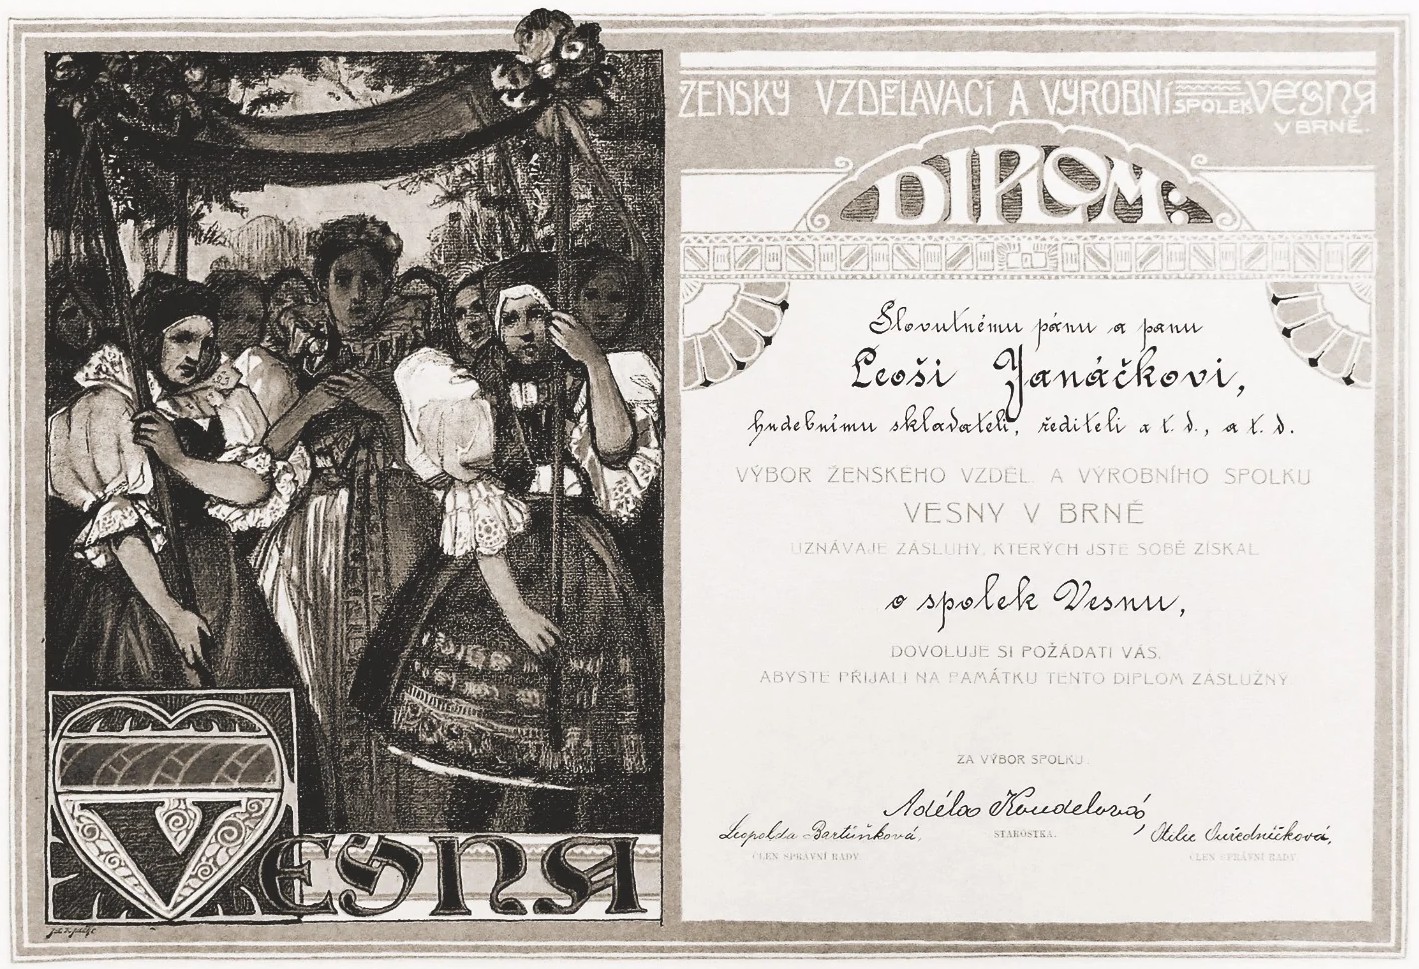 ŽENSKÝ VZDĚLAVACÍ A VÝROBNÍ SPOLEK VESNA
V BRNĚ.
DIPLOM:
Slovutnému pánu a panu
Leoši Janáčkovi,
hudebnímu skladateli, řediteli a t. d., a t. d.
VÝBOR ŽENSKEHO VZDĚL. A VÝROBNÍHO SPOLKU
VESNY V BRNĚ
UZNÁVAJE ZÁSLUHY, KTERÝCH JSTE SOBĚ ZÍSKAL
o spolek Vesnu,
DOVOLUJE SI POŽÁDATI VÁS,
ABYSTE PŘIJALI NA PAMÁTKU TENTO DIPLOM ZÁSLUŽNÝ
ZA VÝBOR SPOLKU:
Adéla Koudelová,
STAROSTKA.
Leopolda Bartůňková,
ČLEN SPRÁVNÍ RADY
Otilie Ouředníčková,
ČLEN SPRÁVNÍ RADY
VESNA